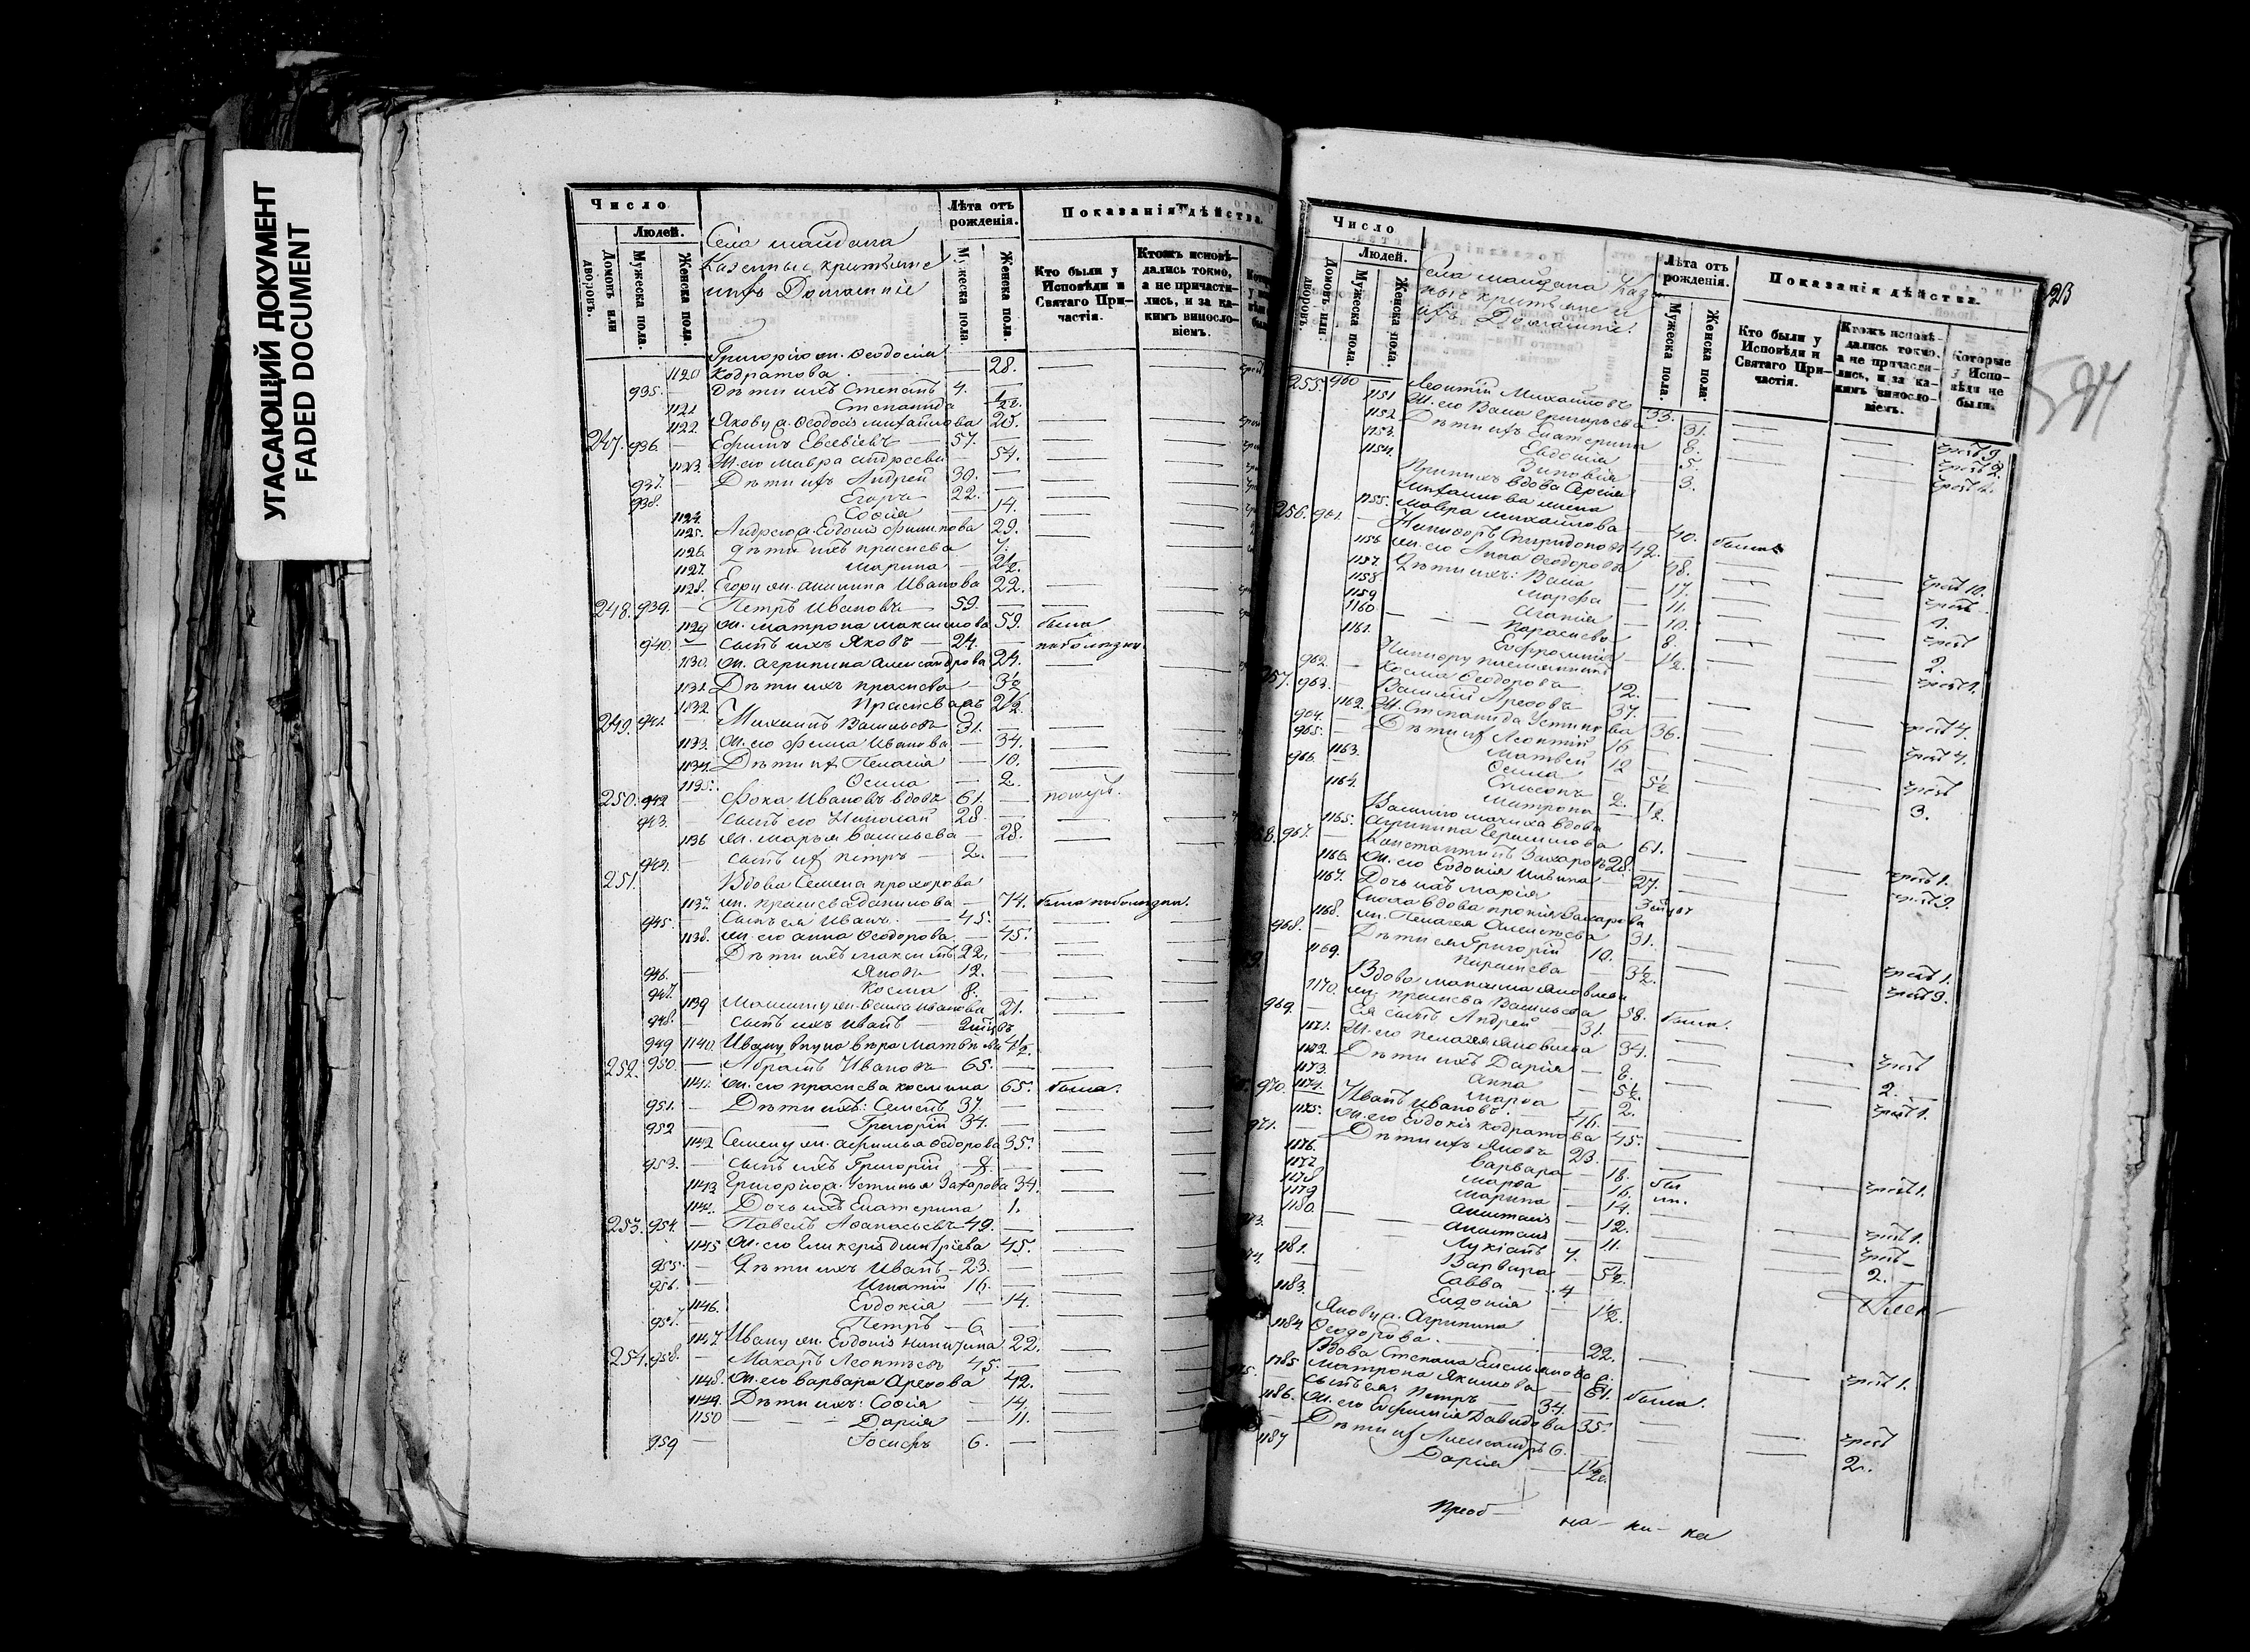 УГАСАЮЩИЙ ДОКУМЕНТ
FADED DOCUMENT
Число
Людей.
Домовъ или дворовъ.
Мужеска пола.
Женска пола.
Села Майдана
Казенные крестьяне
ихъ Домашніе
Лѣта отъ рожденія.
Мужеска пола.
Женска пола.
Показанія дѣйства.
Кто были у Исповѣди и Святаго Причастія.
Ктожъ исповѣдались токмо, а не причастились, и за какимъ винословіемъ.
Григорію ж. Ѳеодосія
1120 Кодратова 28.
935. Дѣти ихъ Степанъ 4.
1121 Степанида
1122 Якову ж. Ѳеодосія Михайлова 25.
247. 936. Ефимъ Евсевіевъ 57.
1123. Ж. его Мавра Андреева 54.
937. Дѣти ихъ Андрей 30.
938. Егоръ 22.
1124. Софія 14.
1125. Андрею ж. Евдокія Филипова 29.
1126. Дѣти ихъ Праскева 7.
1127. Марина 2½.
1128. Егору ж. Акилина Иванова 22.
248. 939. Петръ Ивановъ 59.
1129 Ж. Матрона Максимова 59. была
940. Сынъ ихъ Яковъ 24. по болезни
1130. Ж. Агрипина Александрова 24.
1131. Дѣти ихъ Праскева 3½
1132. Праскева 2½.
249. 941. Михаилъ Васильевъ 31.
1133. Ж. его Ѳекла Иванова 34.
1134. Дѣти ихъ Пелагія 10.
1135. Ѳекла 2.
250. 942 Фока Ивановъ вдовъ 61.
943. Сынъ его Николай 28
1136 Ж. Марья Васильева 28.
944. Сынъ ихъ Петръ 2.
251. Вдова Семена Прохорова
1137. ж. Праскева Данилова 74. была по болезни.
945. Сынъ ея Иванъ 45.
1138. Ж. его Анна Ѳеодорова 45.
Дѣти ихъ Максимъ 22.
946. Яковъ 12.
947. Косма 8.
1139 Максиму ж. Ѳекла Иванова 21.
948. Сынъ ихъ Иванъ
949 1140. Ивану внука Вѣра Матвѣева 4½.
252. 950. Абрамъ Ивановъ 65.
1141. Ж. его Праскева Космина 65. была.
951. Дѣти ихъ: Семенъ 37.
952 Григорій 34.
1142 Семену ж. Афимья Ѳеодорова 35.
953. Сынъ ихъ Григорій 8.
1143 Григорію ж. Устинья Захарова 34.
1144. Дочь ихъ Екатерина 1.
253. 954. Павелъ Аѳанасьевъ 49.
1145 Ж. его Гликерія Дмитріева 45.
955. Дѣти ихъ Иванъ 23.
956. Игнатій 16.
1146. Евдокія 14.
957. Петръ 6
1147. Ивану ж. Евдокія Никитина 22.
254. 958. Макаръ Леонтьевъ 45.
1148. Ж. его Варвара Ареѳова 42.
1149. Дѣти ихъ: Софія 14.
1150 Дарія 11.
959 Іосифъ 6.
Число
Людей.
Домовъ или дворовъ.
Мужеска пола.
Женска пола.
Села Майдана Казен
ные крестьяне и
ихъ Домашніе.
Лѣта отъ рожденія.
Мужеска пола.
Женска пола.
Показанія дѣйства.
Кто были у Исповѣди и Святаго Причастія.
Ктожъ исповѣдались токмо, а не причастились, и за какимъ винословіемъ.
Которые у Исповѣди не были.
23
594
255. 960 Леонтій Михайловъ 33.
1151 Ж. его Васса Григорьева 31.
1152. Дѣти ихъ Екатерина 8.
1153. Евдокія 5.
1154. Зиновія 3.
При нихъ вдова Сергія
Михайлова жена
1155. Мавра Михайлова 40. была
256. 961. Никифоръ Спиридоновъ 42.
1156 Ж. его Анна Ѳеодорова 48.
1157. Дѣти ихъ: Васса 17.
1158 Марфа 11.
1159 Агафія 10.
1160. Параскева 8.
1161. Евфросинія 1½.
Никифору племянникъ
962. Косма Ѳеодоровъ 12.
257. 963. Василій Ареѳовъ 37.
1162. Ж. Степанида Устинова 36.
964. Дѣти ихъ Леонтій 16
965. Матвей 12
1163. Ѳекла 5½
966. Епископъ 2.
1164. Матрона ½.
Василію мачиха вдова
1165. Агрипина Герасимова 61.
258. 967. Константинъ Захаровъ 28.
1166. Ж. его Евдокія Ильина 27.
1167. Дочь ихъ Марія
Сноха вдова Прокія Захарова
1168. ж. Пелагея Алексеева 31.
968. Дѣти ея Григорій 10.
1169. Параскева 3½.
Вдова Максима Яковлева
1170. ж. Праскева Васильева 58. была.
969. Ея сынъ Андрей 31.
1171. Ж. его Пелагея Яковлева 34.
1172. Дѣти ихъ Дарія 8.
1173. Анна 5½.
1174. Марѳа 2.
970. Иванъ Ивановъ 46.
1175. Ж. его Евдокія Кодратова 45.
971. Дѣти ихъ Яковъ 23.
1176. Варвара 18.
1177 Марѳа 16.
1178 Марина 14.
1179 Анастасія 12.
1180. Анастасія 11.
Лукіанъ 7.
1181. Варвара 5½.
Савва 4
1183. Евдокія 1½.
Якову ж. Агрипина
1184 Ѳеодорова 22.
Вдова Степана Емельянова
1185. Матрона Якимова 61. была.
Сынъ ея Петръ 34.
1186. Ж. его Евфимія Давидова 35.
Дѣти ихъ Александръ 6.
1187 Дарія 1½.